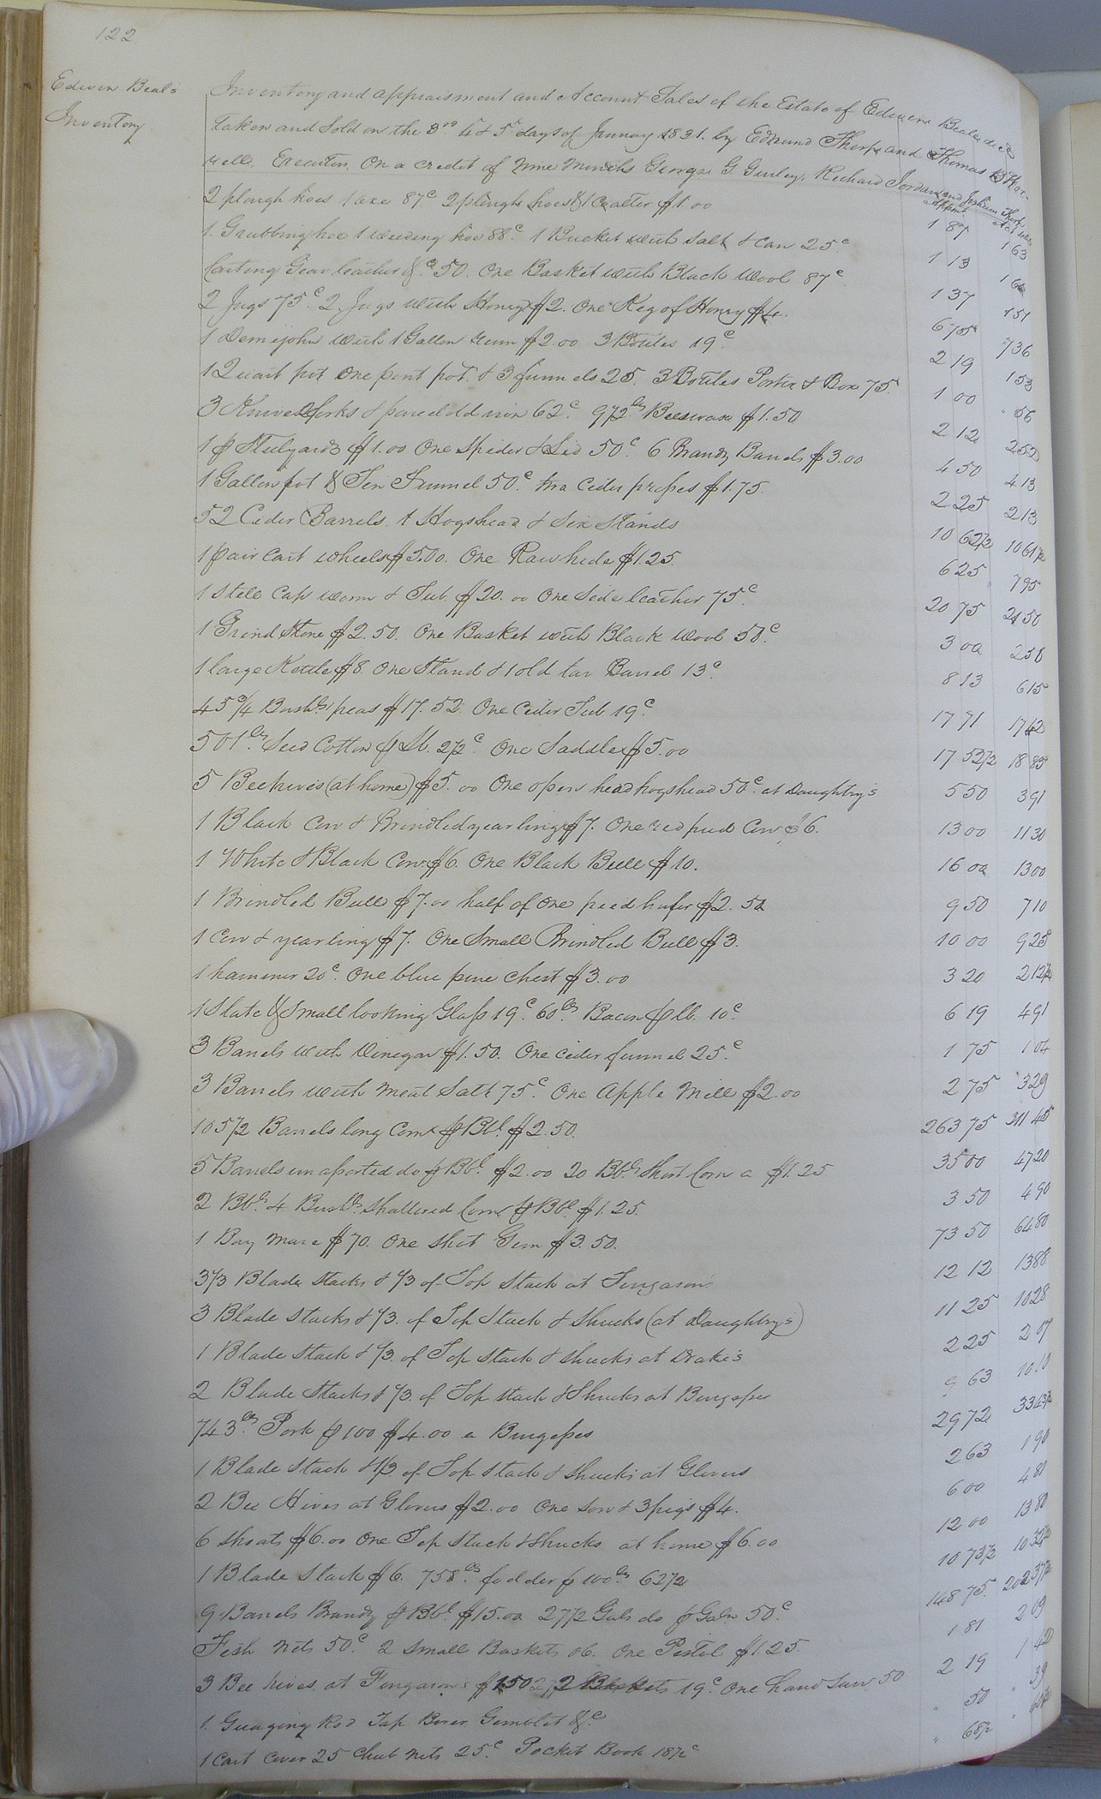 122
Edwin Beal's
Inventory
Inventory and appraisment and Account Sales of the Estate of Edwin Beal decd
taken and Sold on the 3rd 4th & 5th days of January 1831. by Edmund Tharp and Thomas B
well. Executors. On a credit of nine Months George G Gurley, Richard Jordan and
2 plough hoes 1 axe 87c 2 plough hoes & 1 Coalter $1.00 1 87 1 63
1. Grubbing hoe 1 weeding hoe 88c. 1 Bucket with Salt & Can 25c 1 13 1
Carting Gear leather &c 50. One Basket with Black Wool 87c 1 37 1 51
2 Jugs 75c. 2 Jugs with Honey $2. One Keg of Honey $4. 6 75 7 36
1 Demijohn with 1 Gallon rum $2.00 3 Bottles 19c 2 19 1 53
1 Quart pot One pint pot. & 3 funnels 25. 3 Bottles Porter & Box 75. 1 00 " 56
3 Knives & forks & parcel old iron 62c. 9 1/2 lbs Beeswax $1.50 2 12 2 52
1 pr Stilyards $1.00 One Spider & Lid 50c. 6 Brandy Barrels $3.00 4 50 4 13
1 Gallon pot & Tin Funnel 50c. two Cider presses $1.75 2 25 2 13
52 Cider Barrels. 1 Hogshead & Six Stands 10 62 1/2 10 61 1/2
1 pair Cart wheels $5.00. One Raw hide $1.25 6 25 7 95
1 Still Cap worm & Tub. $20.00 One Side leather 75c. 20 75 21 50
1 Grind Stone $2.50. One Basket with Black Wool 50c. 3 00 2 58
1 large Kettle $8. One Stand & 1 old tar Barrel 13c. 8 13 6 15
45 3/4 Bushls peas $17.52 One Cider Tub 19c. 17 71 17 42
501 lbs Seed Cotton pr lb. 2 1/2c. One Saddle $5.00 17 52 1/2 18 85
5 Beehives (at home) $5.00 One open head hogshead 50c. at Daughtry's 5 50 3 91
1 Black Cow & Brindled yearling $7. One red pied Cow $6. 13 00 11 30
1 White & Black Cow $6. One Black Bull $10. 16 00 13 00
1 Brindled Bull $7.00 half of One pied heifer $2.50 9 50 7 10
1 Cow & yearling $7. One Small Brindled Bull $3. 10 00 9 25
1 hammer 20c. One blue pine chest $3.00 3 20 2 12 1/2
1 Slate & Small looking Glass 19c. 60 lbs. Bacon pr lb. 10c. 6 19 4 91
3 Barrels with Vinegar $1.50. One Cider funnel 25.c 1 75 1 04
3 Barrels with Meat Salt 75c. One Apple Mill $2.00 2 75 3 29
105 1/2 Barrels long Corn pr Bbl. $2.50. 263 75 311 45
5 Barrels unassorted do pr Bbl. $2.00 20 Bbls short Corn a $1.25 35 00 47 20
2 Bbls. 4 Bushls. Shattered Corn pr Bbl. $1.25 3 50 4 90
1 Bay Mare $70. One Shot Gun $3.50. 73 50 64 80
3 1/3 Blade Stacks & 1/3 of Top Stack at Furgason 12 12 13 88
3 Blade Stacks & 1/3. of Top Stack & Shucks (at Daughtry's) 11 25 10 28
1 Blade Stack & 1/3. of Top Stack & Shucks at Drake's 2 25
2 Blade Stacks & 1/3. of Top Stack & Shucks at Burgesses 9 63 10 10
743 lbs. Pork pr 100 $4.00 a Burgesses 29 72 33 43 1/2
1 Blade Stack & 1/3 of Top Stack & Shucks at Glovers 2 63 1 90
2 Bee Hives at Glovers $2.00 One Sow & 3 pigs $4. 6 00 4 81
6 Shoats $6.00 One Top Stack & Shucks at home $6.00 12 00 13 80
1 Blade Stack $6. 758 lbs. fodder pr 100 lbs. 62 1/2 10 73 1/2
9. Barrels Brandy pr Bbl $15.00 27 1/2 Gals do pr Galn 50.c 148 75
Fish Nets 50c 2 Small Baskets 06. One Pistol $1.25. 1 81 2 09
3 Bee hives at Furgasons $1.50 2 Baskets 19c. One hand Saw 50 2 19 1 42
1. Guaging Rod Tap Borer Gimblet &c " 50 " 39
1 Cart Cover 25 Chub nets 25.c Pocket Book 18 1/2c " 68 1/2